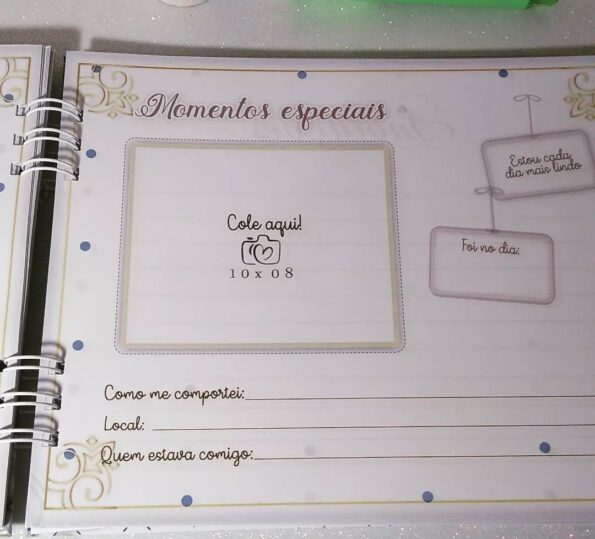 Momentos especiais
Estou cada
dia mais lindo
Cole aqui!
10 x 08
Foi no dia:
Como me comportei:
Local:
Quem estava comigo: